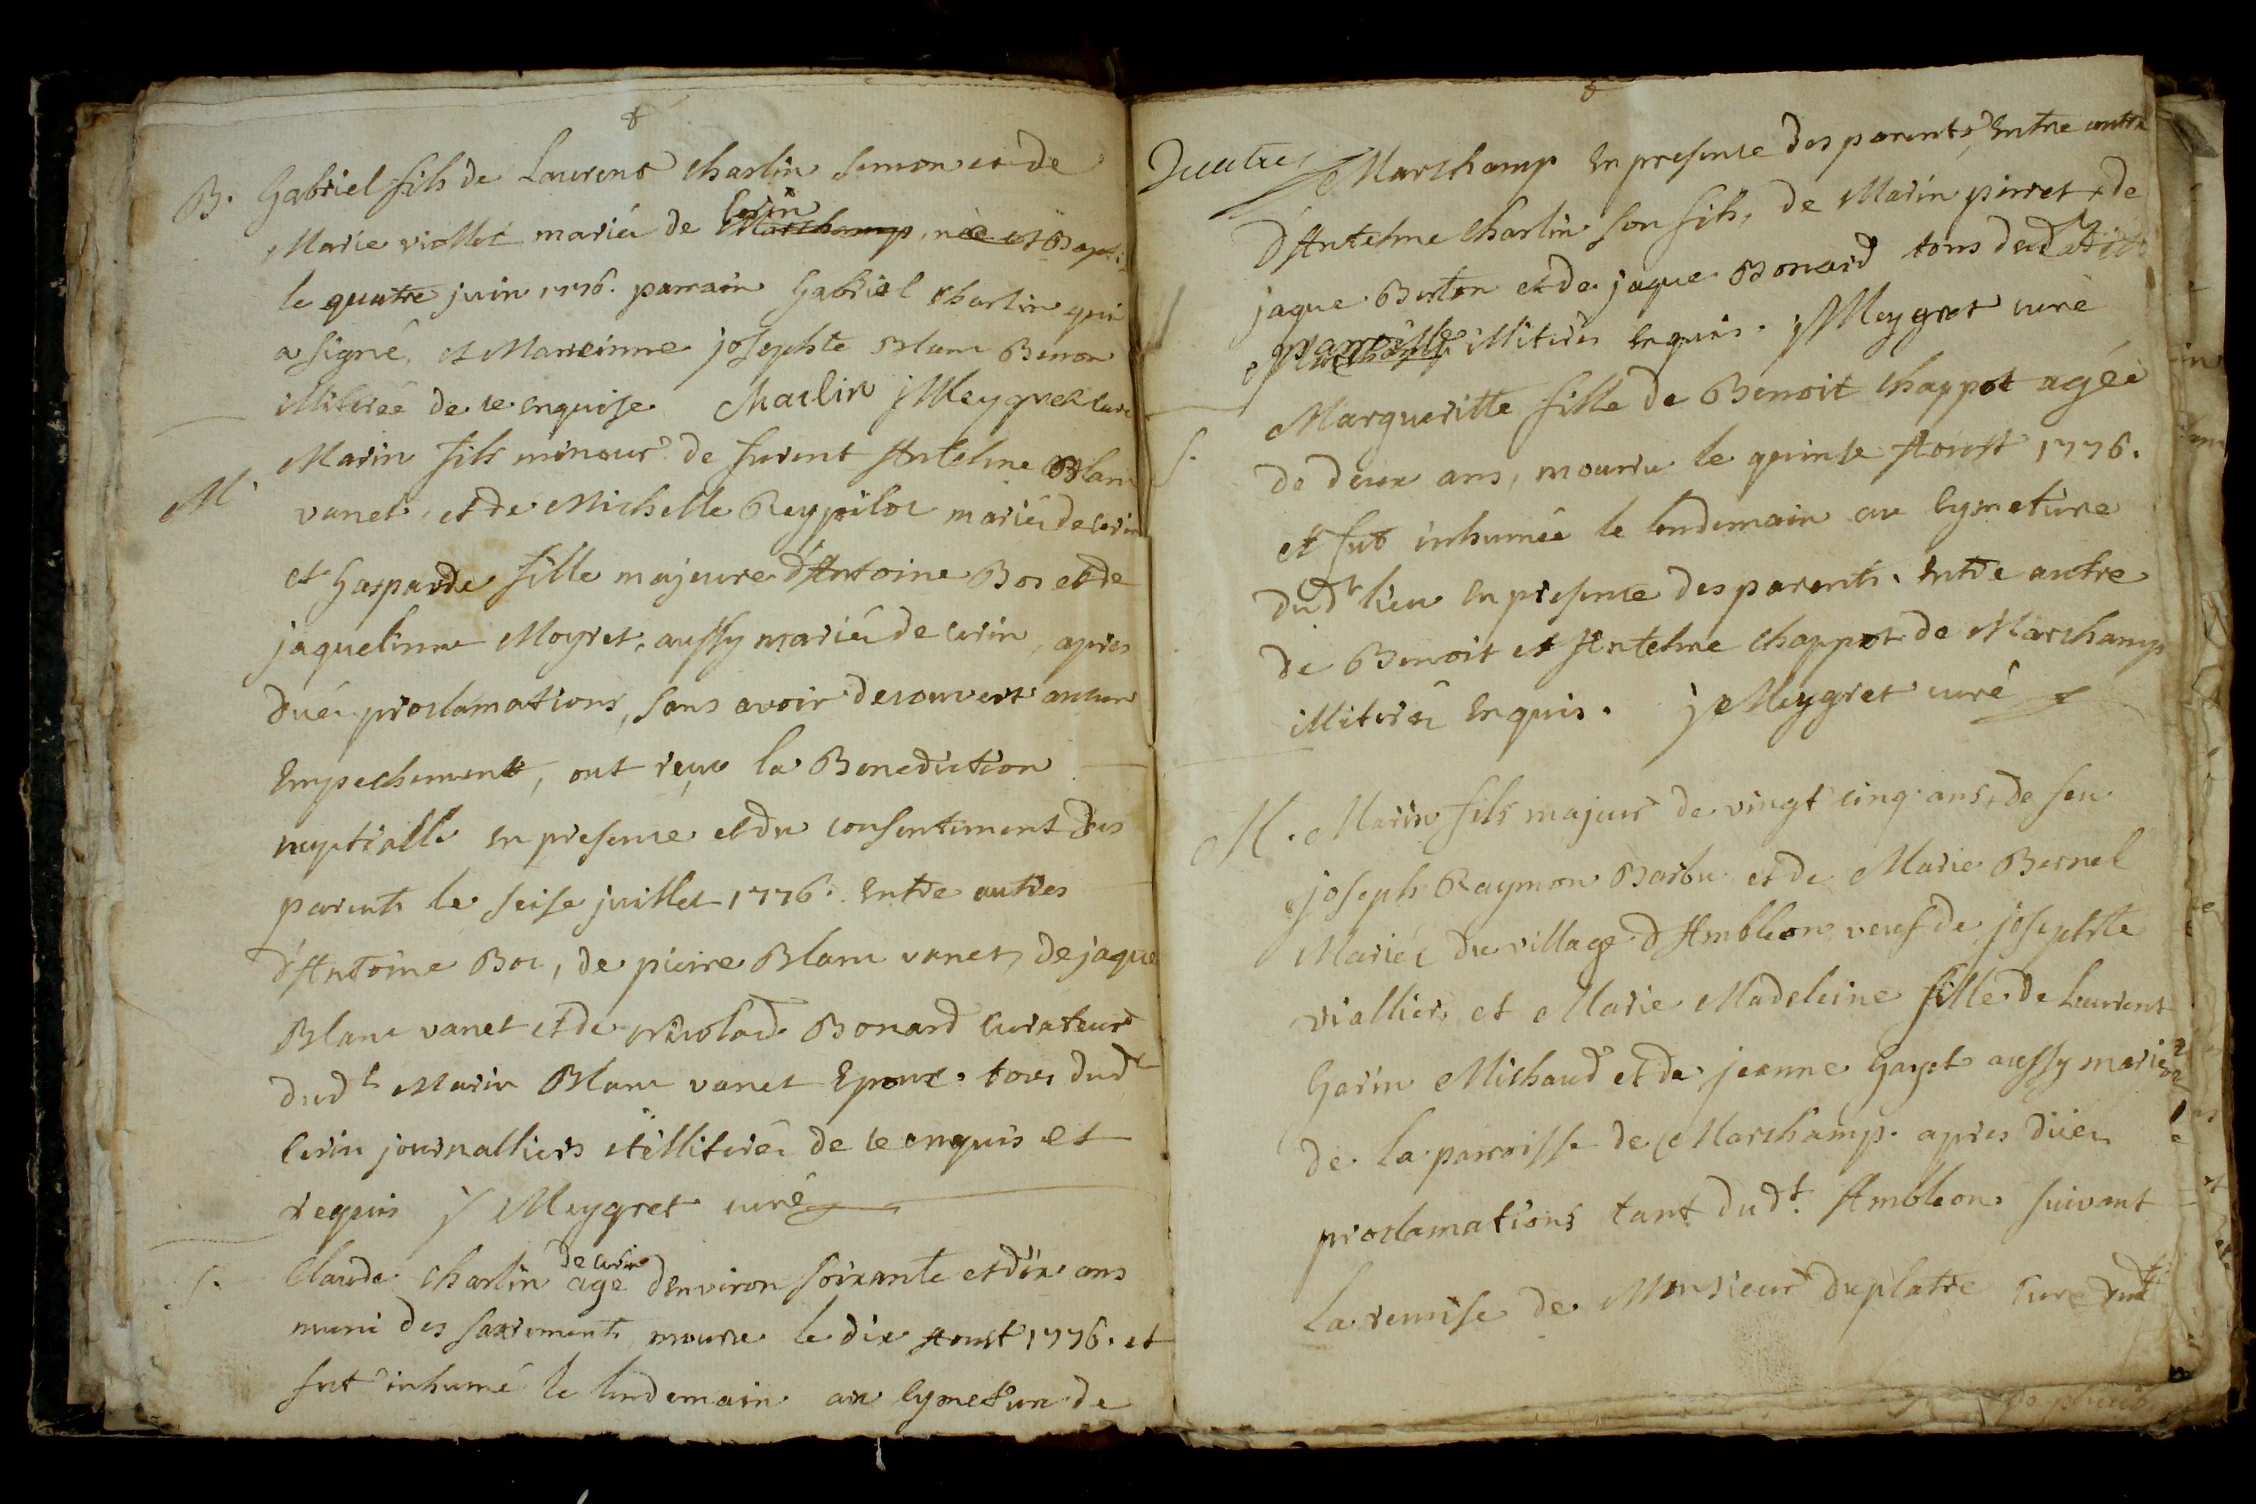 B. Gabriel fils de Laurent Charlin Simon et de
Marie viollet mariés de Cerin ~~Marchamp~~, née et Bapt.
le quatre juin 1776. parrain Gabriel Charlin qui
a signé, et Marreinne josephte Blanc Benon
illiterée de ce enquise. Charlin j Meygret curé
M. Marin fils mineur de furent Antelme Blanc
vanet, et de Michelle Reypilot mariés de Cerin
et Gasparde fille majeure d'Antoine Bos et de
jaquelinne Moyret, aussy mariés de Cerin, apres
dués proclamations, sans avoir decouvert aucun
Empechement, ont reçu la Benediction
nuptialle en presence et du consentement des
parents le seise juillet 1776. Entre autres
d'Antoine Boc, de pierre Blanc vanet, de jaque
Blanc vanet et de Nicolas Bonard Curateur
dudt Marin Blanc vanet Epoux. tous dudt
Cerin journalliers et illiterés de ce enquis et
requis j Meygret curé
S. Claude Charlin de Cerin agé d'environ soixante et dix ans
muni des sacrements mouru le dix Aoust 1776. et
fut inhumé le lendemain au Cymetiere de
Marchamp en presence des parents, Entre autre
d'Antelme Charlin son fils, de Marin pierret, de
jaque Berlon et de jaque Bonard tous de
illiterés enquis. j Meygret curé
S. Margueritte fille de Benoit Chappot agée
de deux ans, mouru le quinse Aoust 1776.
et fut inhumée le lendemain au Cymetiere
dudt lieu en presence des parents. Entre autre
de Benoit et Antelme Chappot de Marchamp
illiterés enquis. j Meygret curé
M. Marin fils majeur de vingt cinq ans, de feu
joseph Raymon Barbu et de Marie Bernel
Mariés du village d'Ambleon veuf de josephte
viallier, et Marie Madeleine fille de Laurent
Garin Michaud et de jeanne Gayet aussy mariés
de la parroisse de Marchamp. apres dües
proclamations tant dudt. Ambleon suivant
La remise de Monsieur Duplatre Curé dudt